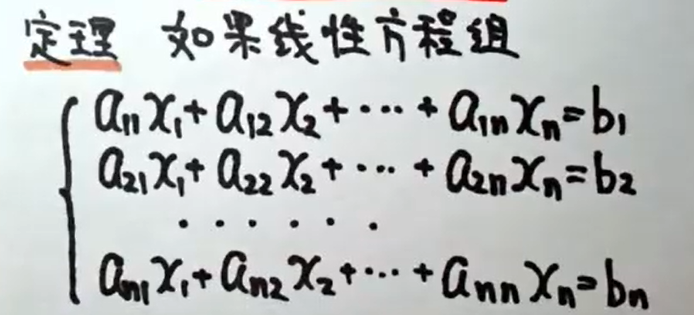 定理 如果线性方程组
a₁₁x₁+a₁₂x₂+⋯+a₁ₙxₙ=b₁
a₂₁x₁+a₂₂x₂+⋯+a₂ₙxₙ=b₂
······
aₙ₁x₁+aₙ₂x₂+⋯+aₙₙxₙ=bₙ